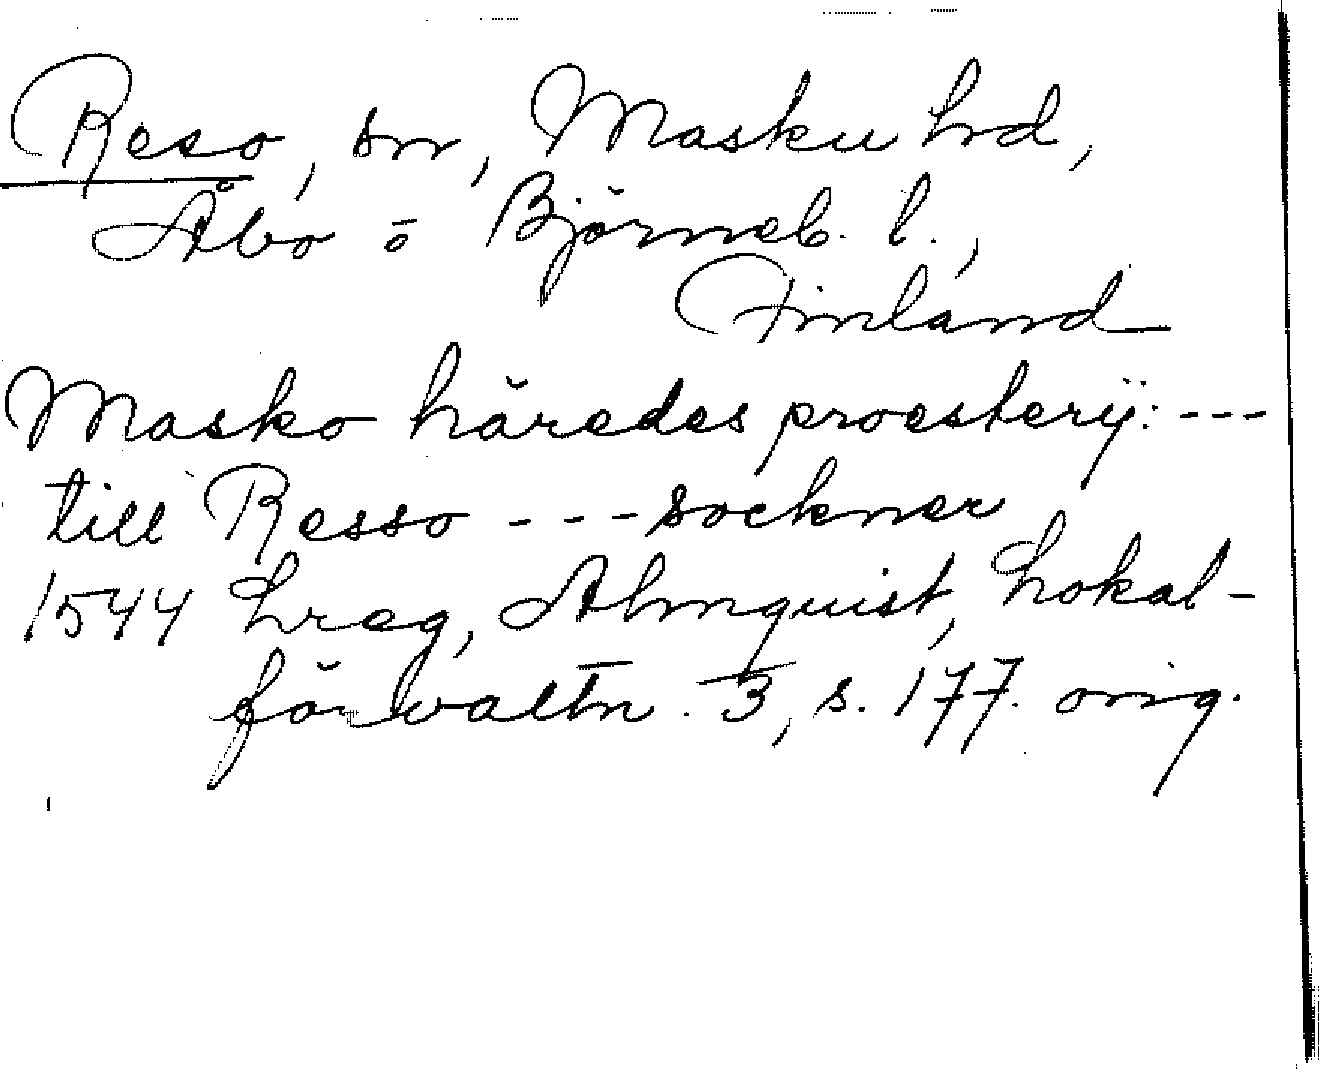 Reso, sn, Masku hd,
Åbo o Björneb. l.,
Finland
Masko häredes proesterij: ---
till Resso --- sockner
1544 Lreg, Almquist, Lokal-
förvaltn. 3, s. 177. orig.